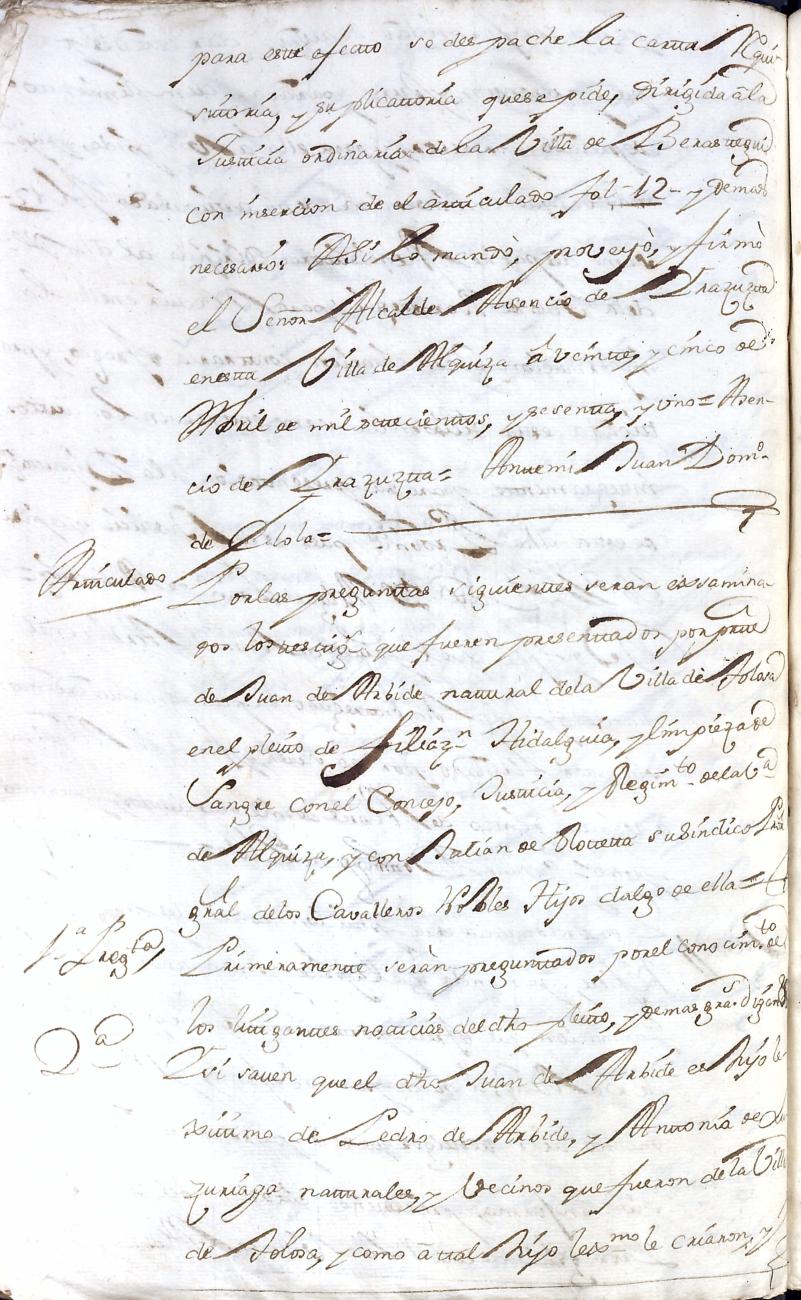 para este efecto se despache la carta Requi-
sitoria, y suplicattoria que se pide, dirigida â la
Justicia ordinaria de la Villa de Berastegui
con insercion de el articulado fol-12- y demas
necesarios Asi lo mandò, proveyò, y firmò
el Señor Alcalde Asencio de Yrazuzta
en esta Villa de Alquiza â veinte, y cinco de
Abril de mil setecientos, y sesenta, y uno= Asen-
cio de Yrazuzta= Antemi Juan Domo.
de Olola=
Articulado Por las preguntas siguientes seran exsamina-
dos los testigs. que fueren presenttados por partte
de Juan de Arbide natural de la Villa de Tolosa
en el pleito de filiazn. Hidalguia, y limpieza de
Sangre con el Concejo, Justicia, y Regimto. de la Va.
de Alquiza, y con Julian de Rotetta su Sindico Pror.
gnral de los Cavalleros Nobles Hijos dalgo de ella=
1.a Pregta. Primeramente seràn preguntados por el conocimto. de
los litigantes noticias del dho pleito, y demas gras. digan
2a Y si saven que el dho Juan de Arbide es hijo le-
xitimo de Pedro de Arbide, y Antonia de
zuriaga naturales, y Vecinos que fueron de la Villa
de Tolosa, y como â tal hijo lexmo. le criaron, y